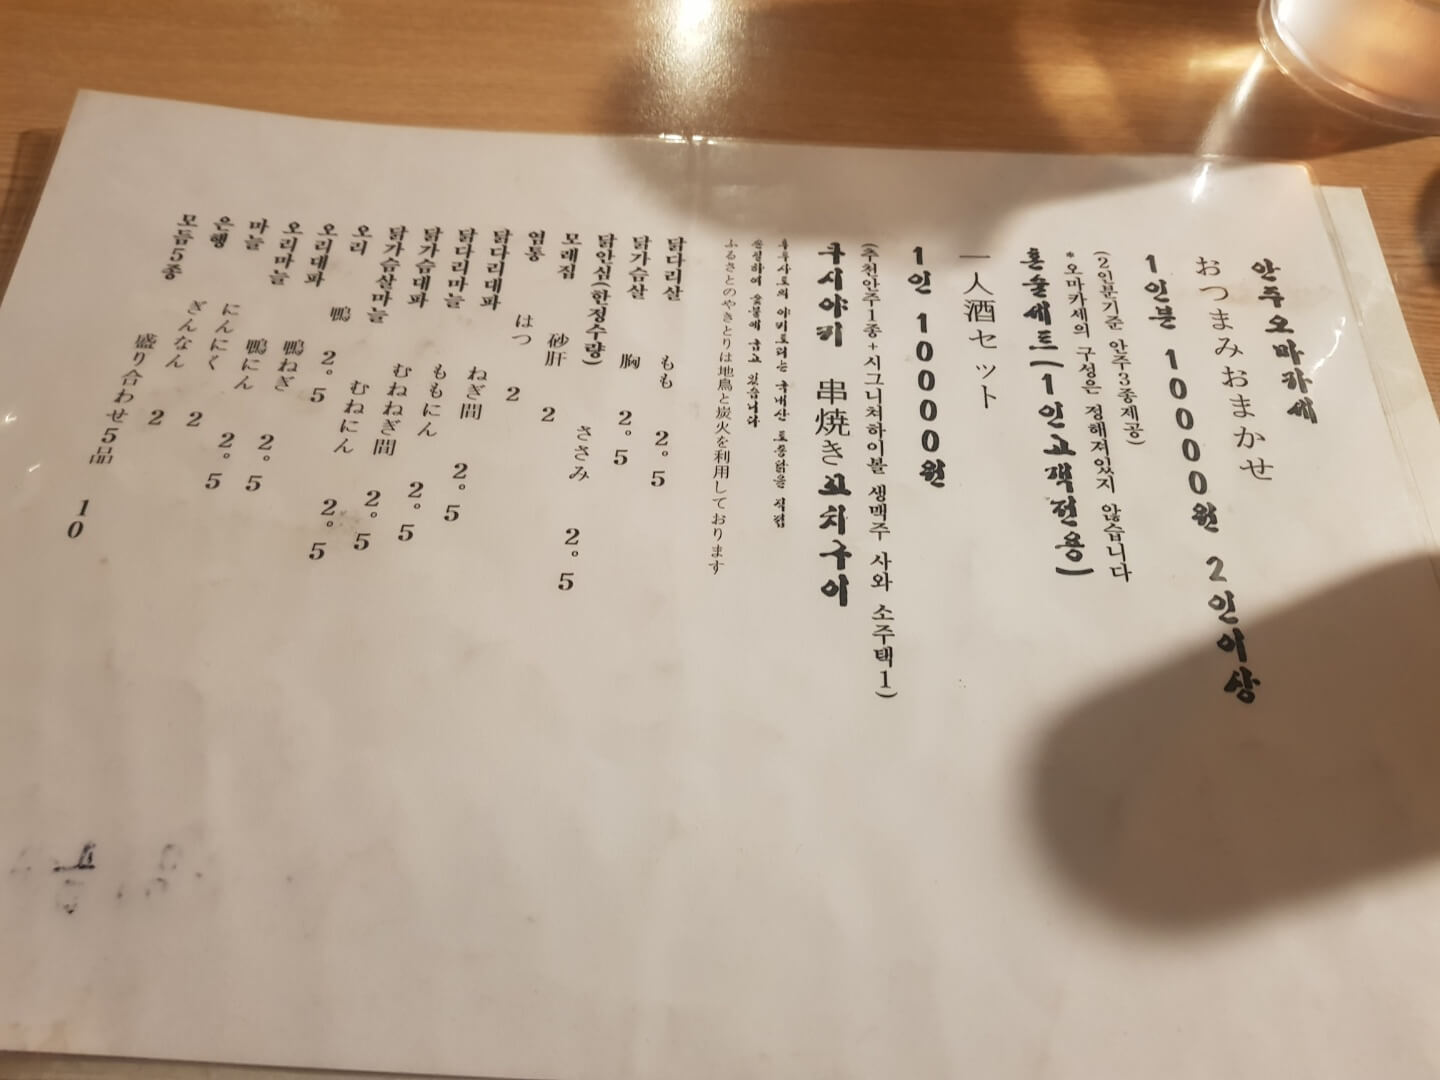 안주오마카세
おつまみおまかせ
1인분 10000원 2인이상
(2인분기준 안주3종제공)
*오마카세의 구성은 정해져있지 않습니다
혼술세트(1인고객전용)
一人酒セット
1인 10000원
(추천안주1종+시그니쳐하이볼 생맥주 사와 소주택1)
쿠시야키 串焼き 꼬치구이
후루사토의 야키토리는 국내산 토종닭을 직접
손질하여 숯불에 굽고 있습니다
ふるさとのやきとりは地鳥と炭火を利用しております
닭다리살 もも 2。5
닭가슴살 胸 2。5
닭안심(한정수량) ささみ 2。5
모래집 砂肝 2
염통 はつ 2
닭다리대파 ねぎ間 2。5
닭다리마늘 ももにん 2。5
닭가슴대파 むねねぎ間 2。5
닭가슴살마늘 むねにん 2。5
오리 鴨 2。5
오리대파 鴨ねぎ 2。5
오리마늘 鴨にん 2。5
마늘 にんにく 2
은행 ぎんなん 2
모듬5종 盛り合わせ5品 10